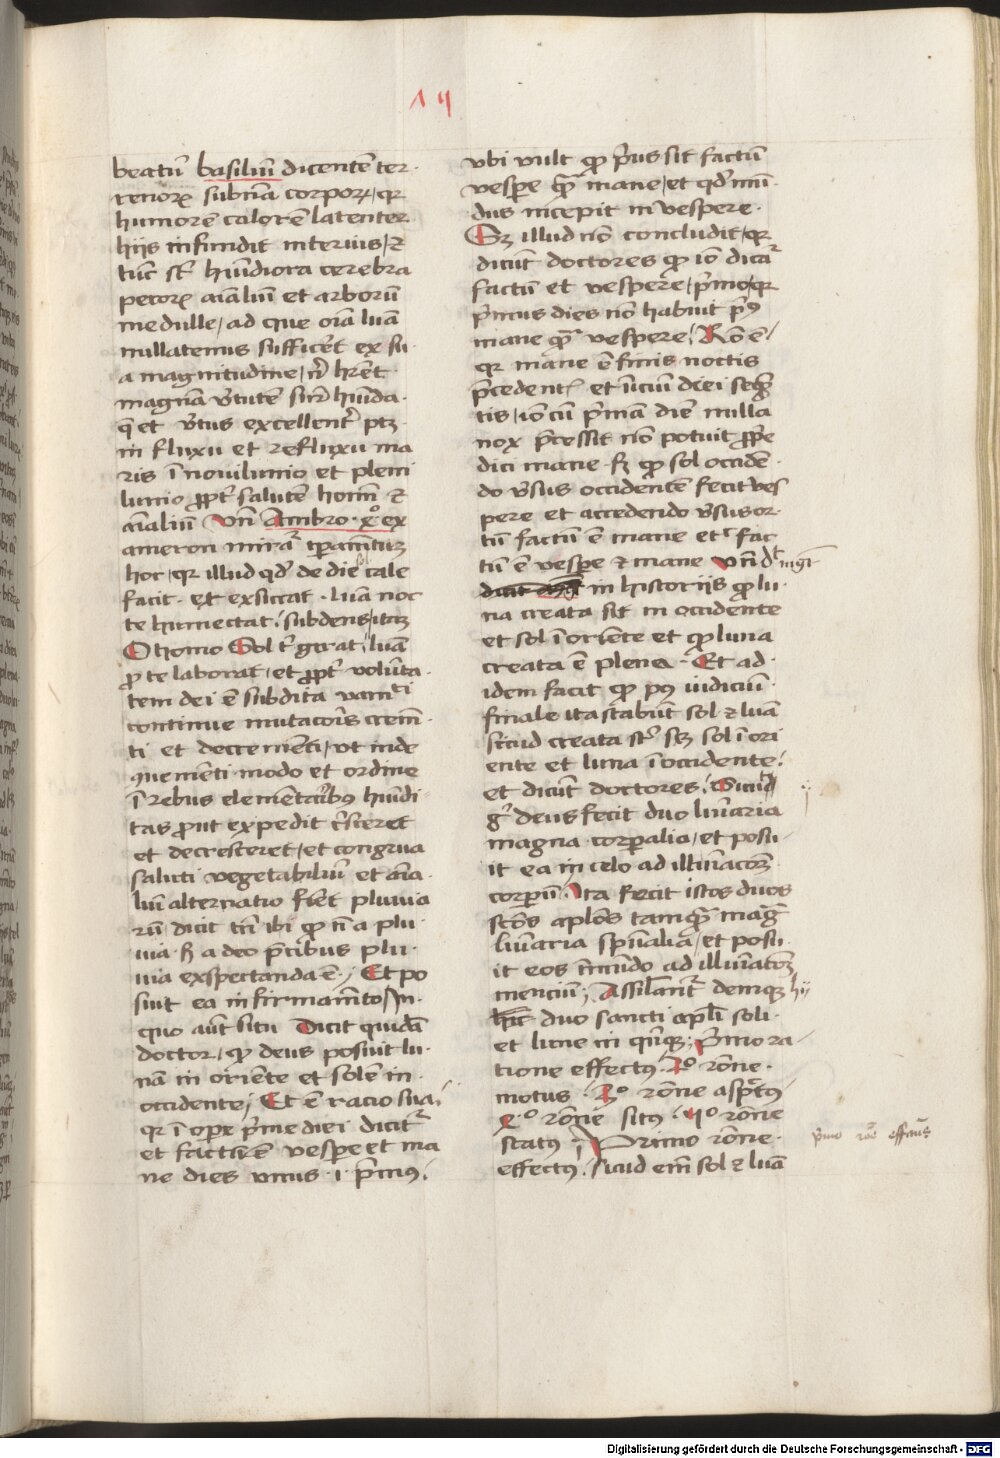 14
beatū basiliū dicentē ter
renorꝝ subn̄a corporꝝ, qr
humorē calorē latenter
hijs infundit interius, ⁊
tūc st̄ hūidiora cerebra
pecorꝝ aīaliū et arborū
medulle, ad que oīa lūa
nullatenus sufficēt ex su
a magnitudine, n̄ hr̄et
magnā v̓tutē sup̄ hūida
q̄ et v̓tus excellent̓ ptꝫ
in fluxu et refluxu ma
ris ī nouilunio et pleni
lunio ꝓpt̓ salutē hoīm ⁊
aīaliū Vn̄ Ambro. xͦ. ex
ameron
hoc, qr illud qd̓ de die sol cale
facit. et exsiccat. lūa noc
te humectat. subdens,
O homo Sol t̓ lūa
ꝓ te laborat, et ꝓpt̓ volūta
tem dei ē subdita vanti
continue mutacōis crem̄
ti et decremēti, vt inde
modo et ordine
ī rebus elementaribꝰ hūidi
tas prout expedit c̓sceret
et decresceret, et congrua
saluti vegetabiliū et aīa
liū alternatio fi̓et pluuia
rū dicit tn̄ ibi ꝙ nō a plu
uia ß a deo p̄cibus plu
uia exspectanda ē. Et po
suit ea in firmamēto, In
quo aūt situ Dicit quidā
doctor, ꝙ deus posuit lu
nā in oriēte et solē in
occidente, Et ē racio sua,
qr ī ope p̓me diei dicit̓
et factū ē vespe et ma
ne dies vnus .i. p̓mꝰ.
vbi vult ꝙ p̓us sit factū
vespe qꝫ mane, et qd̓ mū
dus incepit in vespere.
Sꝫ illud nō concludit, qr
dicūt doctores ꝙ iō dicat̓
factū et vespere, p̓mo, qr
p̓mus dies nō habuit p̓ꝰ
mane qꝫ vespere, Rō ē
qr mane ē finis noctis
p̄cedentꝭ et iniciū diei seqn̄
tis, iō cū p̓mā diē nulla
nox p̄cessit nō potuit ꝓpe
dici mane. ß ꝙ sol occidē
do v̓sus occidentē fecit ves
pere et accedendo v̓sus or
tū factū ē mane et sic fac
tū ē vespe ⁊ mane Vn̄ dt̓ mgr̄
in historijs ꝙ lu
na creata sit in occidente
et sol ī oriēte et ꝙ luna
creata ē plena. Et ad
idem facit ꝙ pꝰ iudiciū
finale ita stabūt sol ⁊ lūa
sicud creata st̄ sꝫ sol ī ori
ente et luna ī occidente.
et dicūt doctores. Sicud
g̓ deus fecit duo luīaria
magna corpalia, et posu
it ea in celo ad illuīacōꝫ
corpū. Ita fecit istos duos
sctōs aplōs tamqꝫ mag̅
luīaria spūalia, et posu
it eos ī mūdo ad illuīacōꝫ
menciū, Assilant̓ demqꝫ hij
duo sancti apli soli
et lune in qnqꝫ, p̓mo ra
tione effectꝰ. 2ͦ rōne
motus. 3ͦ rōne asptꝰ
xͦ rōne sitꝰ. 4ͦ rōne
status. Primo rōne
effectꝰ. sicud em̄ sol ⁊ lūa
p̓mo rōe effectus
Digitalisierung gefördert durch die Deutsche Forschungsgemeinschaft - DFG